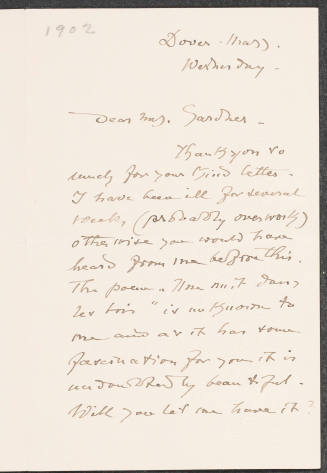 1902
Dover - Mass.
Wednesday -
Dear Mrs. Gardner -
Thank you so
much for your kind letter -
I have been ill for several
weeks, (probably overwork)
otherwise you would have
heard from me before this.
The poem "Une nuit dans
les bois" is unknown to
me and as it has some
fascination for you it is
undoubtedly beautiful -
Will you let me have it?